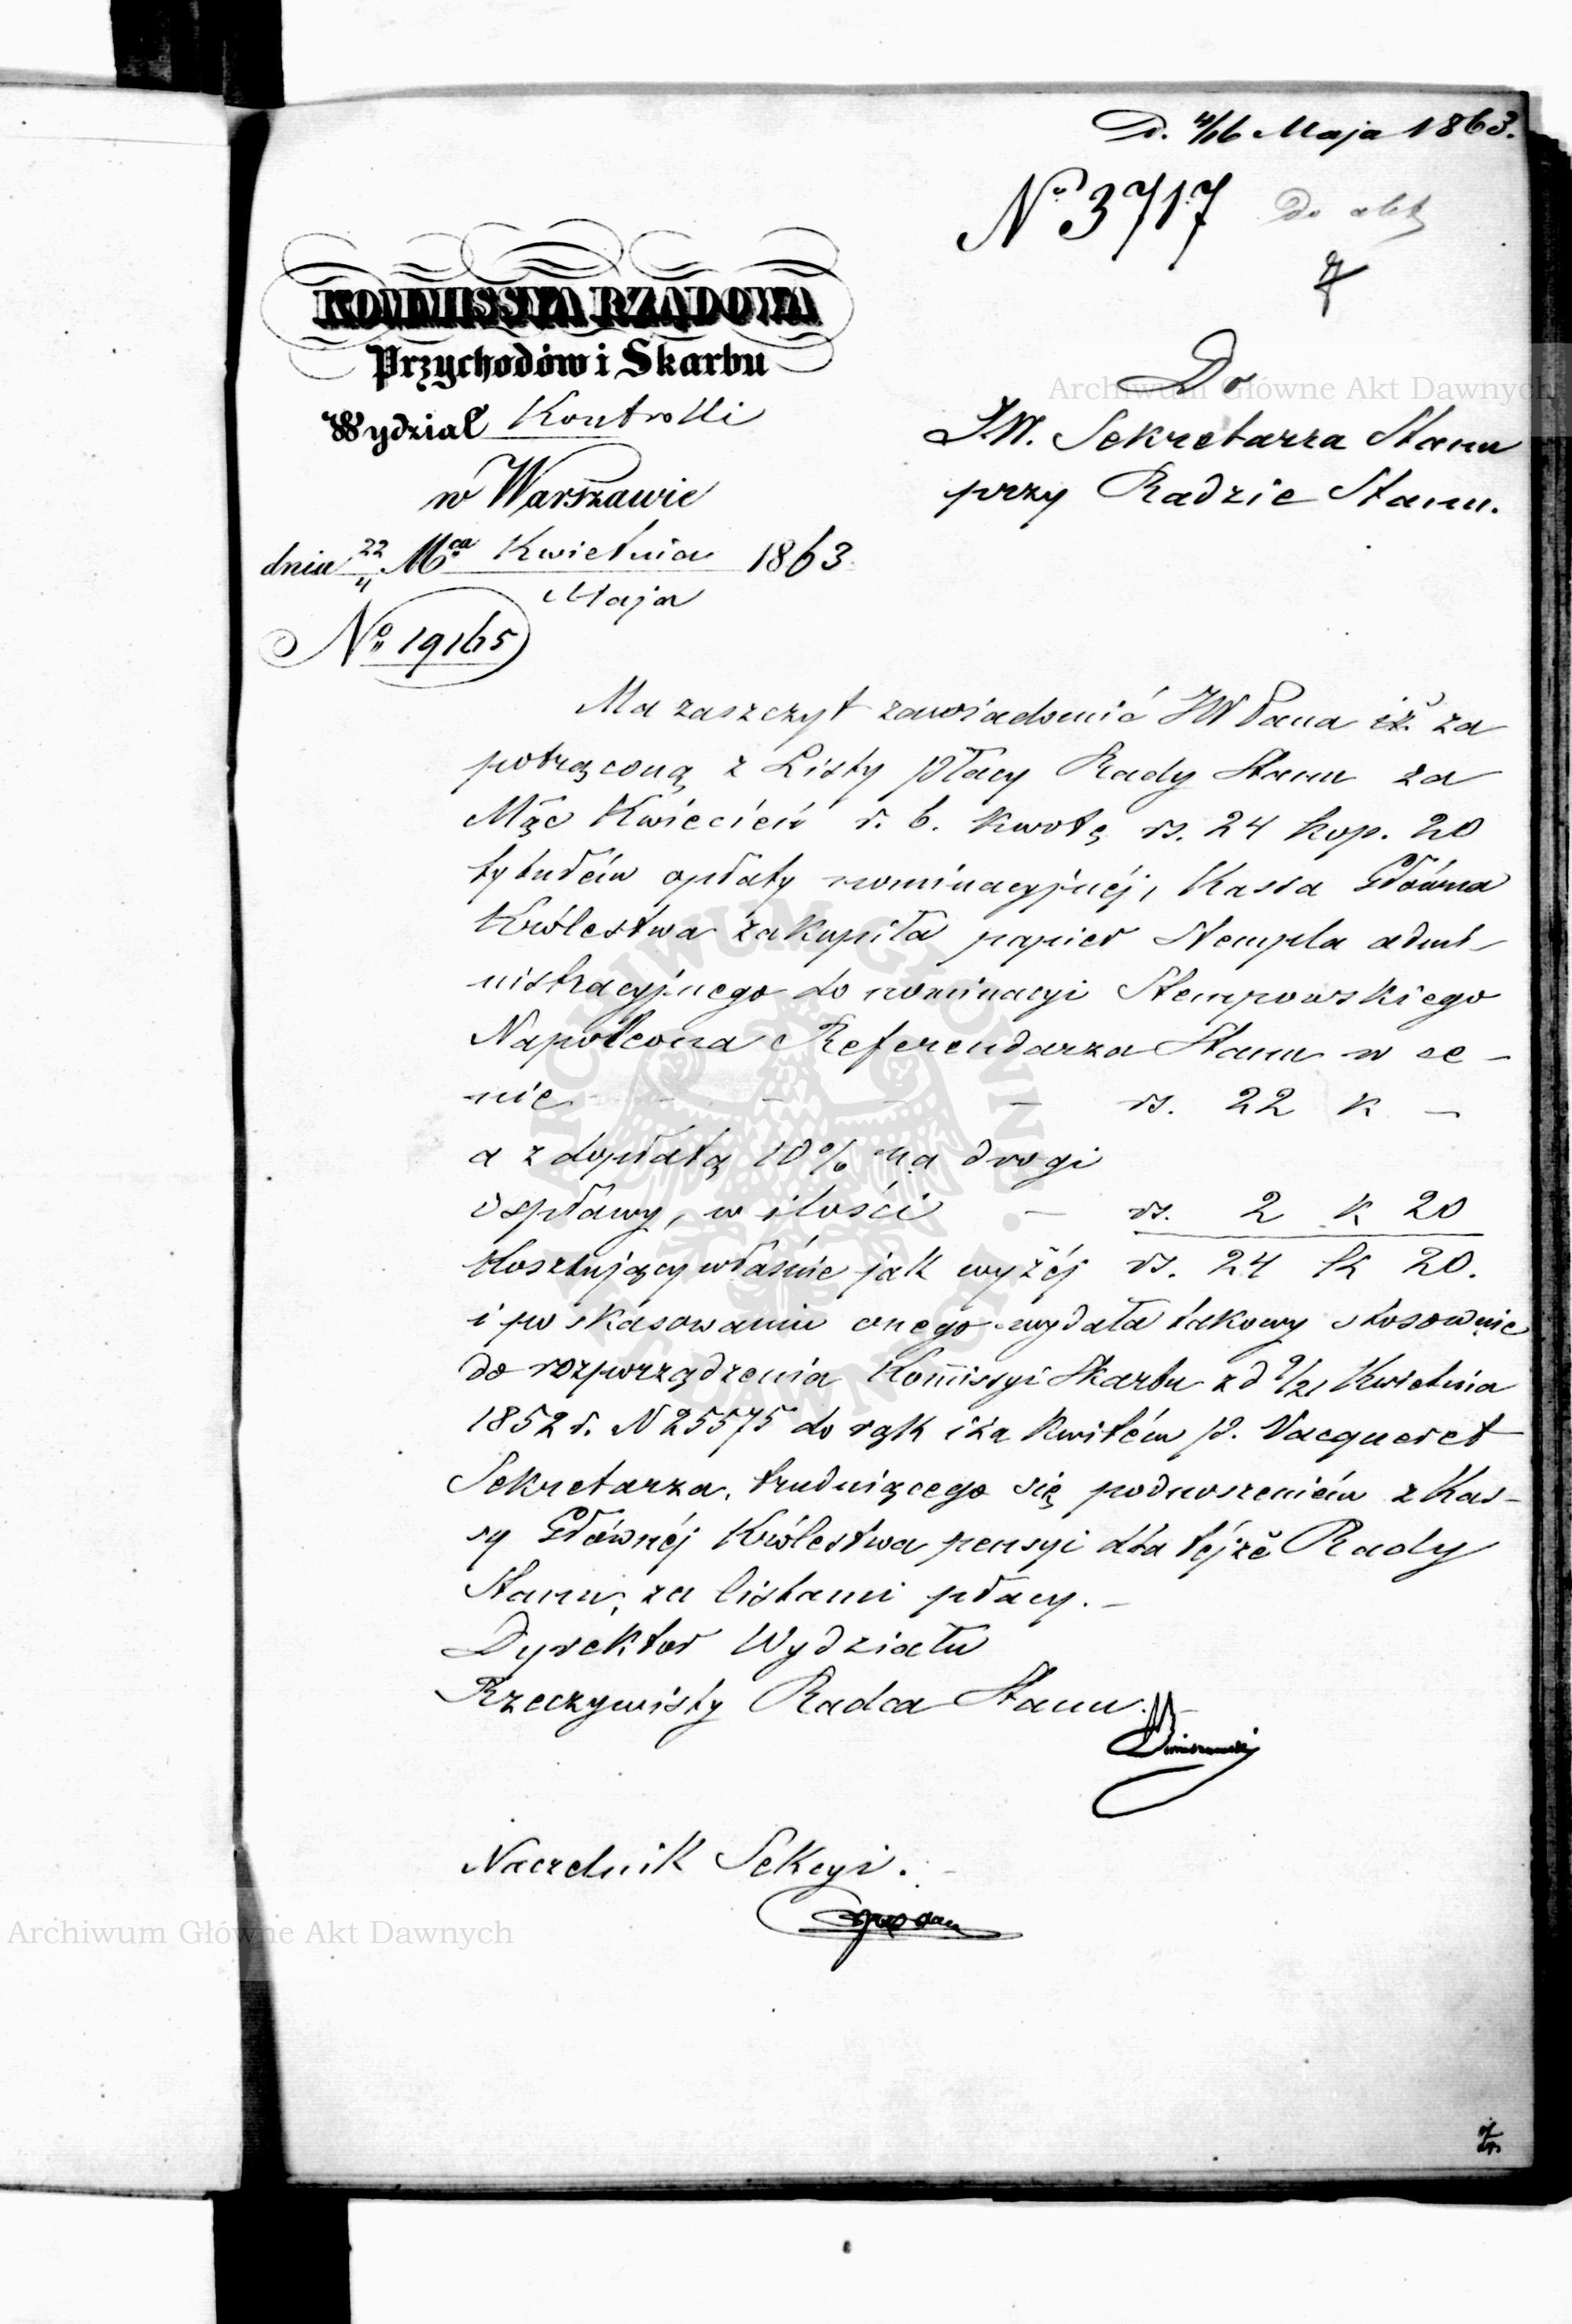 D. 4/16 Maja 1863.
No 3717 Do akt
KOMMISSYA RZĄDOWA
Przychodów i Skarbu
Wydział Kontrolli
w Warszawie
dnia 22/4 Mca Kwietnia/Maja 1863
No 19165
Do
JW. Sekretarza Stanu
przy Radzie Stanu.
Ma zaszczyt zawiadomić JW Pana iż za
potrąconą z Listy płacy Rady Stanu za
Mąc Kwiecień r. b. kwotę rs. 24 kop. 20
tytułem opłaty nominacyjnéj, Kassa Główna
Królestwa zakupiła papier Stempla admi-
nistracyjnego do nominacyi Stempowskiego
Napoleona Referendarza Stanu w ce-
nie - - - - rs. 22 k -
a z dopłatą 10% na drogi
i spławy, w ilości - rs. 2 k 20
Kosztujący właśnie jak wyżéj rs. 24 k 20.
i po skasowaniu onego wydała takowy stosownie
do rozporządzenia Kommissyi Skarbu z d 9/21 Kwietnia
1852 r. N 25575 do rąk i za kwitem p. Vacqueret
Sekretarza, trudniącego się podnoszeniem z Kas-
sy Głównéj Królestwa pensyi dla téjże Rady
Stanu, za listami płacy. -
Dyrektor Wydziału
Rzeczywisty Radca Stanu. -
Naczelnik Sekcyi. -
Archiwum Główne Akt Dawnych
Archiwum Główne Akt Dawnych
ARCHIWUM GŁÓWNE AKT DAWNYCH